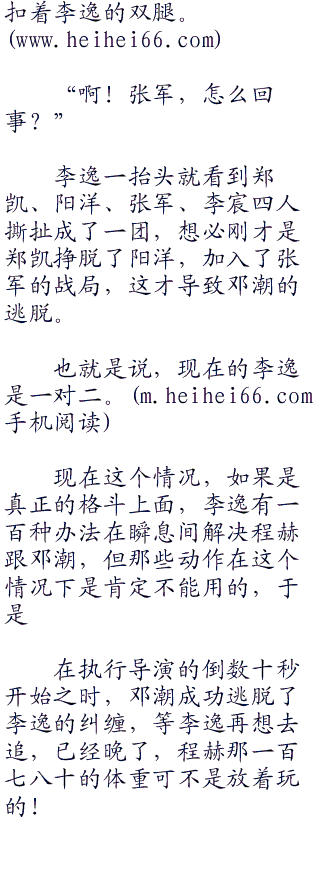 扣着李逸的双腿。
(www.heihei66.com)
“啊！张军，怎么回
事？”
李逸一抬头就看到郑
凯、阳洋、张军、李宸四人
撕扯成了一团，想必刚才是
郑凯挣脱了阳洋，加入了张
军的战局，这才导致邓潮的
逃脱。
也就是说，现在的李逸
是一对二。(m.heihei66.com
手机阅读)
现在这个情况，如果是
真正的格斗上面，李逸有一
百种办法在瞬息间解决程赫
跟邓潮，但那些动作在这个
情况下是肯定不能用的，于
是
在执行导演的倒数十秒
开始之时，邓潮成功逃脱了
李逸的纠缠，等李逸再想去
追，已经晚了，程赫那一百
七八十的体重可不是放着玩
的！